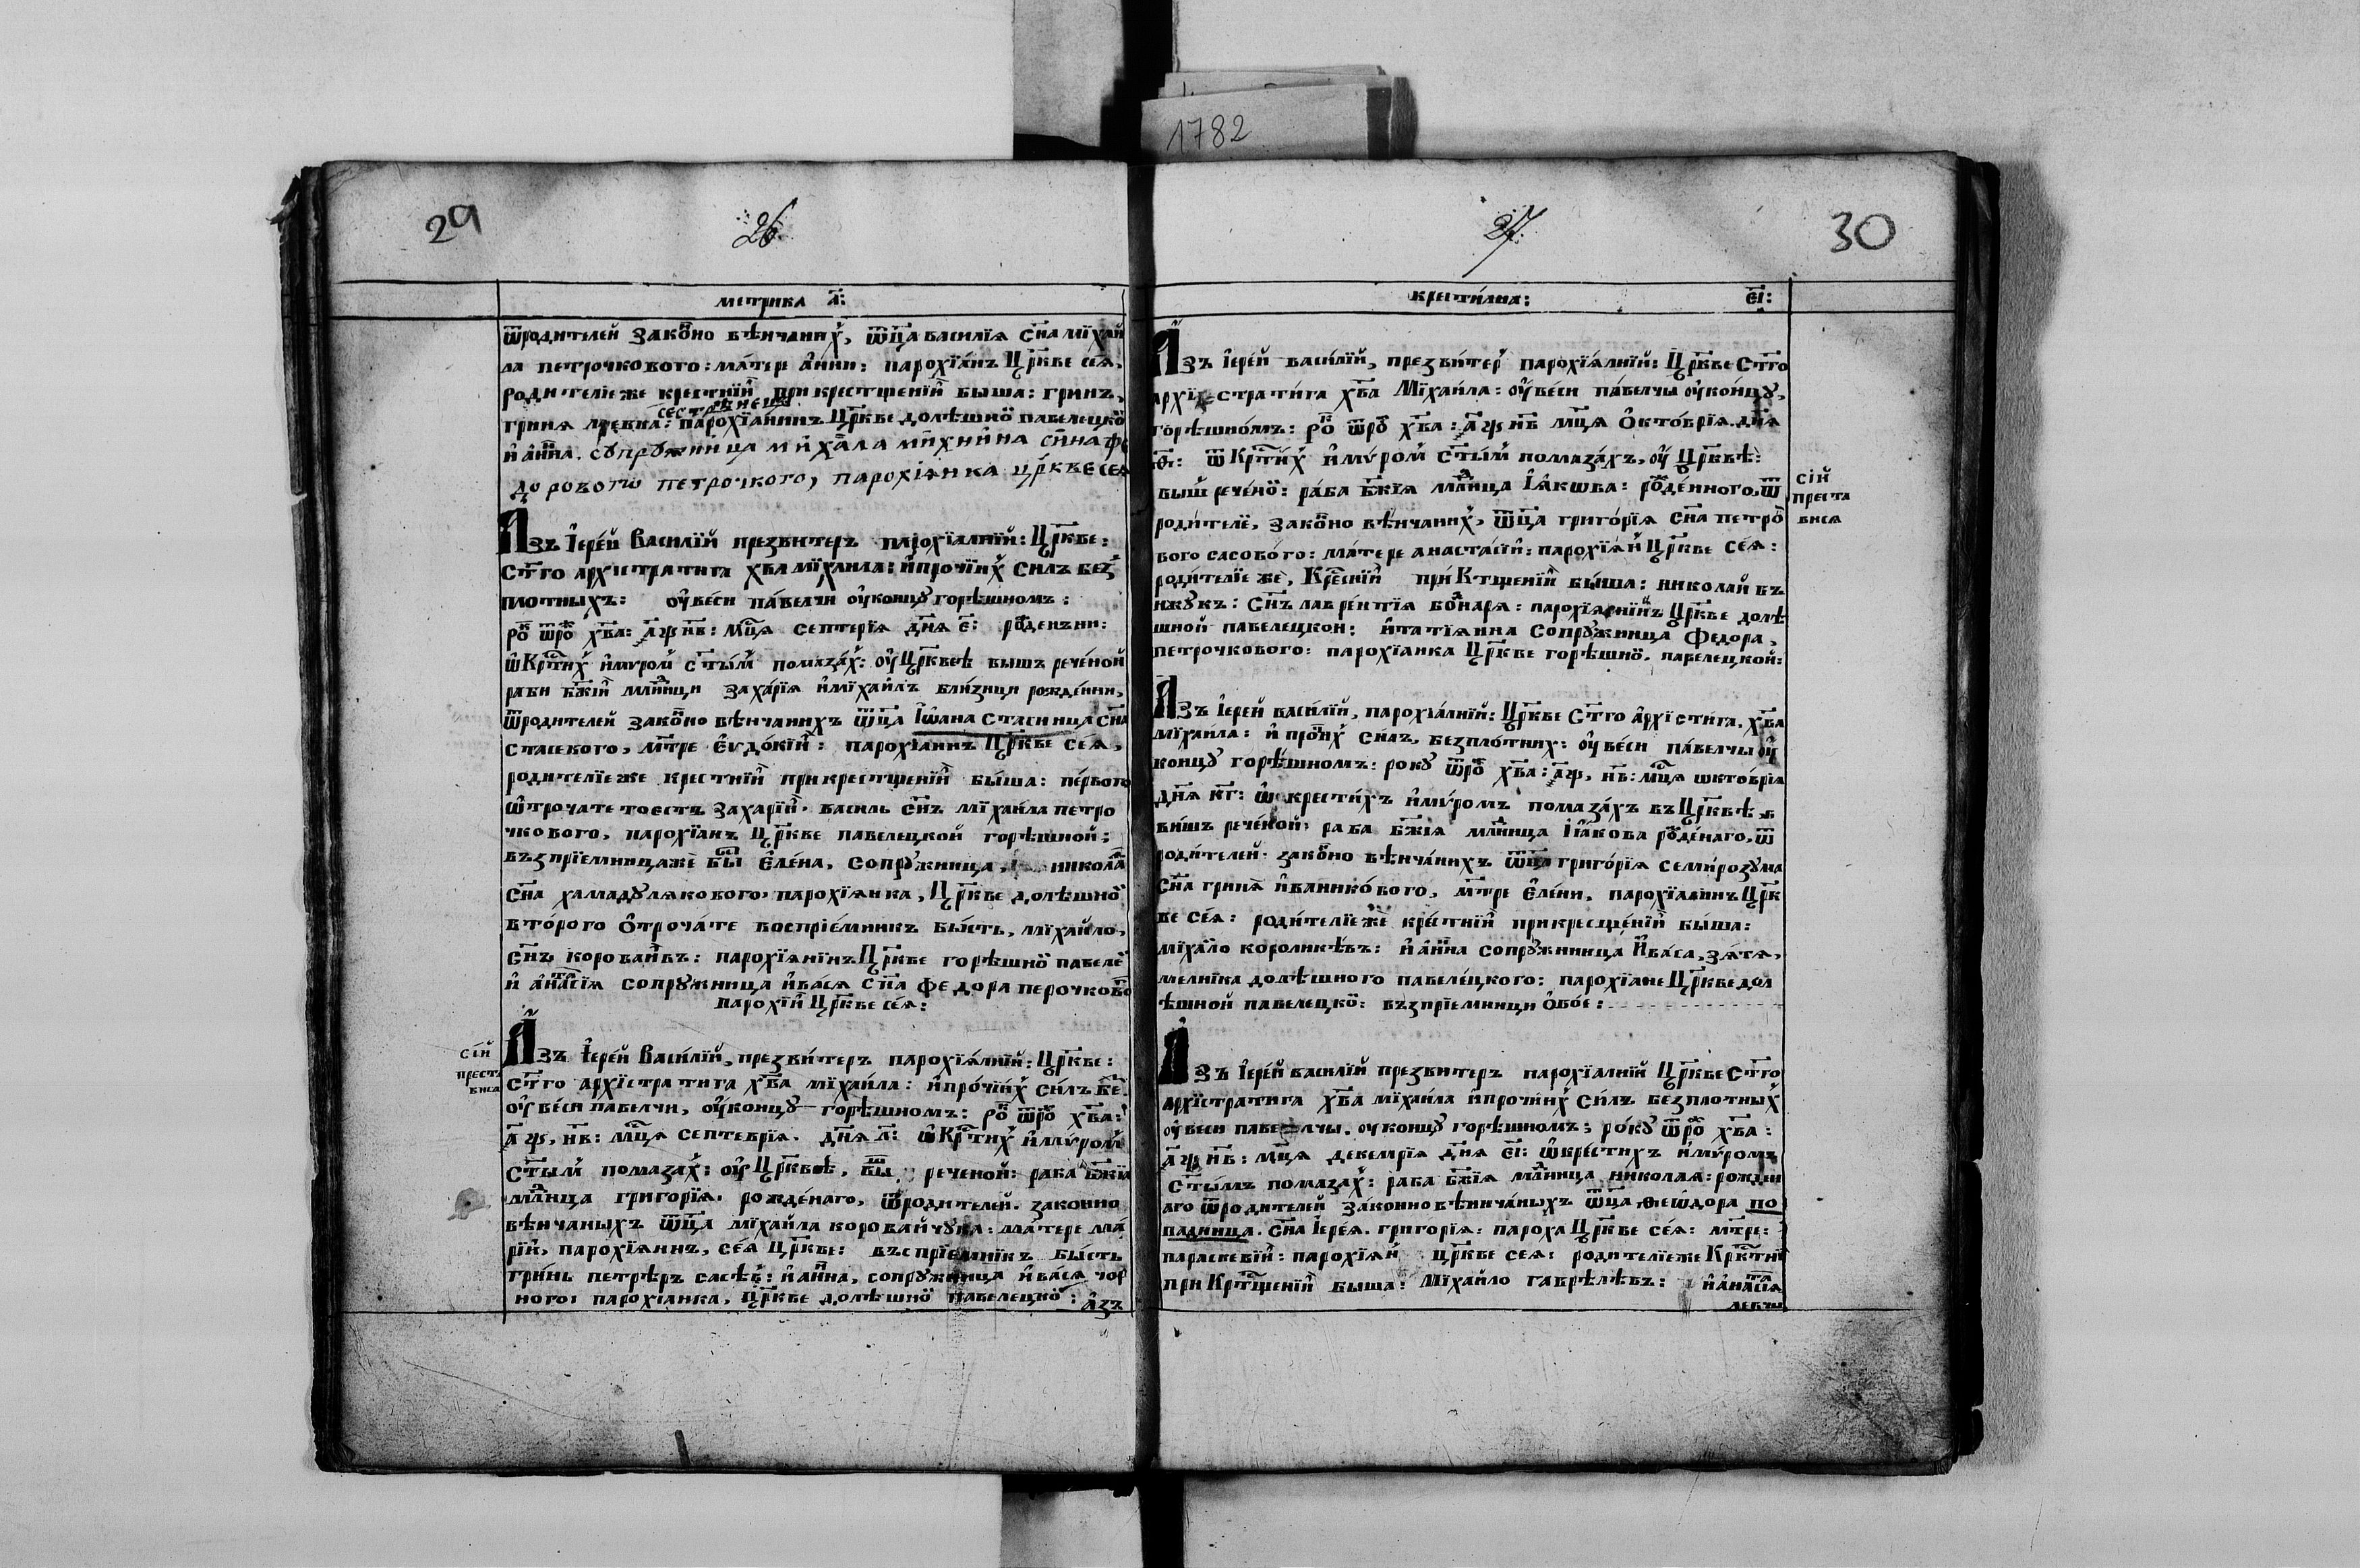 1782
29
26
метрика а҃:
ѿродителей законно вѣнчанних, ѿца василїя сн҃а мїхай
ла петрочкового: матере анни: парохїанъ Цр҃кве сея.
родителїе же крестнїи прикрестщенїи быша: гринъ,
сестрѣнецъ
гриня левка: парохїанинъ Цр҃кве долѣшно павелецко
и анна. сопружница михала михнина сина фе
дорового петрочкого, парохїянка цр҃кве сея
Азъ Їерей Василїй презвитеръ парохїалнїй: Цр҃кве:
Ст҃го архистратига хв҃а мїхаила: и прочїих силъ без
плотныхъ: оу веси павелчи оу концу горѣшномъ:
Ро҃к ѿ ро҃ж хв҃а: ҂аѱ нв҃: мц҃я септерїя дн҃я є҃: рожденъни:
ѡкрт҃их и муром ст҃ым помазах: оу Цр҃квѣ вышъ реченой
раби бж҃їи млн҃ци захарїя и мїхаилъ близнци рожденни,
ѿродителей законно вѣнчаннихъ ѿца Їѡана стасинца сн҃а
стасевого, мт҃ре євдокїи: парохїаннъ Цр҃кве сея,
родителїе же крестнїи прикрестщенїи быша: первого
ѡтрочате тоестъ захарїи. василь сн҃ъ мїхаила петро
чкового, парохїанъ Цр҃кве павелецкой горѣшной;
възпрїемницаже бы Єлена, сопружница, никола
сн҃а хамадулякового парохїянка, Цр҃кве долѣшно
второго отрочате воспрїемникъ бысть, мїхайло,
сн҃ъ корованвъ: парохїянинъ Цр҃кве горѣшно павеле
и анастасїя сопружница ивася сн҃а федора перочково
парохїи Цр҃кве сея:
сїй
преста
вися
Азъ Їерей Василїй, презвитеръ парохїялнїй: Цр҃кве:
Ст҃го архїстратига хв҃а мїхаила: и прочїих силъ бе
оу веси павелчи, оу концу горѣшномъ: Ро҃к ѿ ро҃ж хв҃а:
҂аѱ, нв҃: мц҃я септеврїя. дн҃я л҃: ѡкрт҃их и муром
ст҃ым помазах: оу Цр҃квѣ, вы реченой: раба бж҃їи
млн҃ца григорїя. рожденаго, ѿродителей. законно
вѣнчаныхъ ѿца мїхайла коровайчука: матере ма
рїи, парохїяннъ, сея Цр҃кве: въспрїемнїкъ бысть
гринь петрѣръ сасѣв: и анна, сопружница ивася чор
ного, парохїанка, Цр҃кве долѣшно павелецко:
азъ
27
30
крестилная:
єі҃:
Азъ Їерей василїй, презвитер парохїялнїй: Цр҃кве Ст҃го
архїстратига хв҃а Мїхаила: оу веси павелчы оу концу,
горѣшномъ: Ро҃к ѿ ро҃ж хв҃а: ҂аѱ нв҃ мц҃я Октоврїя. дн҃я
ѳі҃: ѡкрт҃их и муром ст҃ым помазахъ, оу Цр҃квѣ:
выш речено: раба бж҃їя млн҃ца Їакѡва: рожденного, ѿ
родителе, законно вѣнчанних, ѿца григорїя сн҃а петро
вого сасового: матере анастасїи: парохїян Цр҃кве сея:
родителїе же, Креснїи при Ктщенїи быша: николай въ
нжукъ: сн҃ъ лаврентїя бо҃наря: парохїянїнъ Цр҃кве долѣ
шной павелецкои: и татїянна сопружница федора,
петрочкового: парохїанка Цр҃кве горѣшно. павелецкой:
сїй
преста
вися
Азъ Їерей василїй, парохїалнїй: Цр҃кве Ст҃го архїстига. хв҃а
мїхаила: и про҃чих силъ, безплотних: оу веси павелчы оу
концу горѣшномъ: року ѿ ро҃ж хв҃а: ҂аѱ, нв҃: мц҃я ѡктоврїа
дн҃я кг҃: ѡкрестихъ и муромъ помазахъ въ Цр҃квѣ, в
вишъ реченой, раба бж҃їя млн҃ца Їакова рожденаго, ѿ
родителей. законно вѣнчанихъ ѿца григорїя семирозума
сн҃а гриня иванникового, мт҃ре Єлени, парохїаннъ Цр҃к
ве сея: родителїе же крестнїи прикресщенїи быша:
мїхало короликѣвъ: и анна сопружница иваса, зятя,
мелнїка долѣшного павелецкого: парохїане Цр҃кве дол
ѣшной павелецко: възпрїемници обое:
Азъ Їерей василїй презвитеръ парохїалнїй Цр҃кве Ст҃го
архїстратига хв҃а мїхаила и прочих силъ безплотных
оу веси павелчы. оу концу горѣшномъ: року ѿ ро҃ж хв҃а:
҂аѱ нв҃: мц҃я декемрїя дн҃я єі҃: ѡкрестихъ и муромъ
ст҃ымъ помазах: раба бж҃їя млн҃ца николая: рожден
аго ѿродителей законно вѣнчаныхъ ѿца ѳеѡдора по
падинца. сн҃а Їерея. григорїя: пароха Цр҃кве сея: мт҃ре:
параскевїи: парохїян цр҃кве сея: родителїе же Кр҃ктнї
при Кр҃тщенїи быша: Мїхайло гаврѣлѣвъ: и анастасїя
левчи